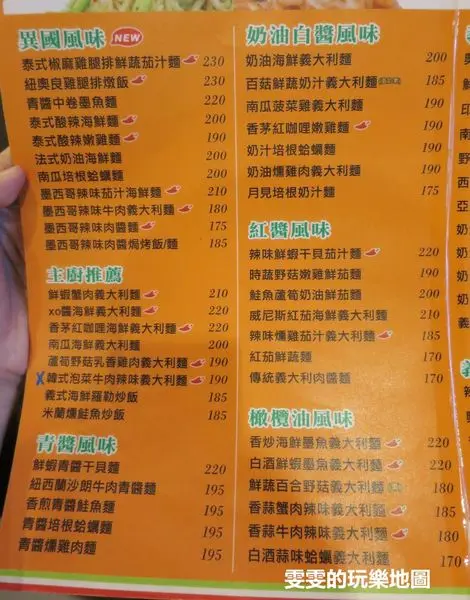 異國風味 NEW
泰式椒麻雞腿排鮮蔬茄汁麵 230
紐奧良雞腿排燉飯 230
青醬中卷墨魚麵 220
泰式酸辣海鮮麵 200
泰式酸辣嫩雞麵 190
法式奶油海鮮麵 200
南瓜培根蛤蠣麵 200
墨西哥辣味茄汁海鮮麵 210
墨西哥辣味牛肉義大利麵 180
墨西哥辣味肉醬麵 175
墨西哥辣味肉醬焗烤飯/麵 185
主廚推薦
鮮蝦蟹肉義大利麵 210
xo醬海鮮義大利麵 220
香茅紅咖哩海鮮義大利麵 220
南瓜海鮮義大利麵 200
蘆筍野菇乳香雞肉義大利麵 190
X韓式泡菜牛肉辣味義大利麵 190
義式海鮮羅勒炒飯 185
米蘭燻鮭魚炒飯 185
青醬風味
鮮蝦青醬干貝麵 220
紐西蘭沙朗牛肉青醬麵 195
香煎青醬鮭魚麵 195
青醬培根蛤蠣麵 195
青醬燻雞肉麵 195
奶油白醬風味
奶油海鮮義大利麵 200
百菇鮮蔬奶汁義大利麵 185
南瓜菠菜雞義大利麵 190
香茅紅咖哩嫩雞麵 190
奶汁培根蛤蠣麵 190
奶油燻雞肉義大利麵 190
月見培根奶汁麵 175
紅醬風味
辣味鮮蝦干貝茄汁麵 220
時蔬野菇嫩雞鮮茄麵 190
鮭魚蘆筍奶油鮮茄麵 200
威尼斯紅茄海鮮義大利麵 200
辣味燻雞茄汁義大利麵 185
紅茄鮮蔬麵 170
傳統義大利肉醬麵 170
橄欖油風味
香炒海鮮墨魚義大利麵 220
白酒鮮蝦墨魚義大利麵 220
鮮蔬百合野菇義大利麵 180
香蒜蟹肉辣味義大利麵 185
香蒜牛肉辣味義大利麵 180
白酒蒜味蛤蠣義大利麵 170
雯雯的玩樂地圖